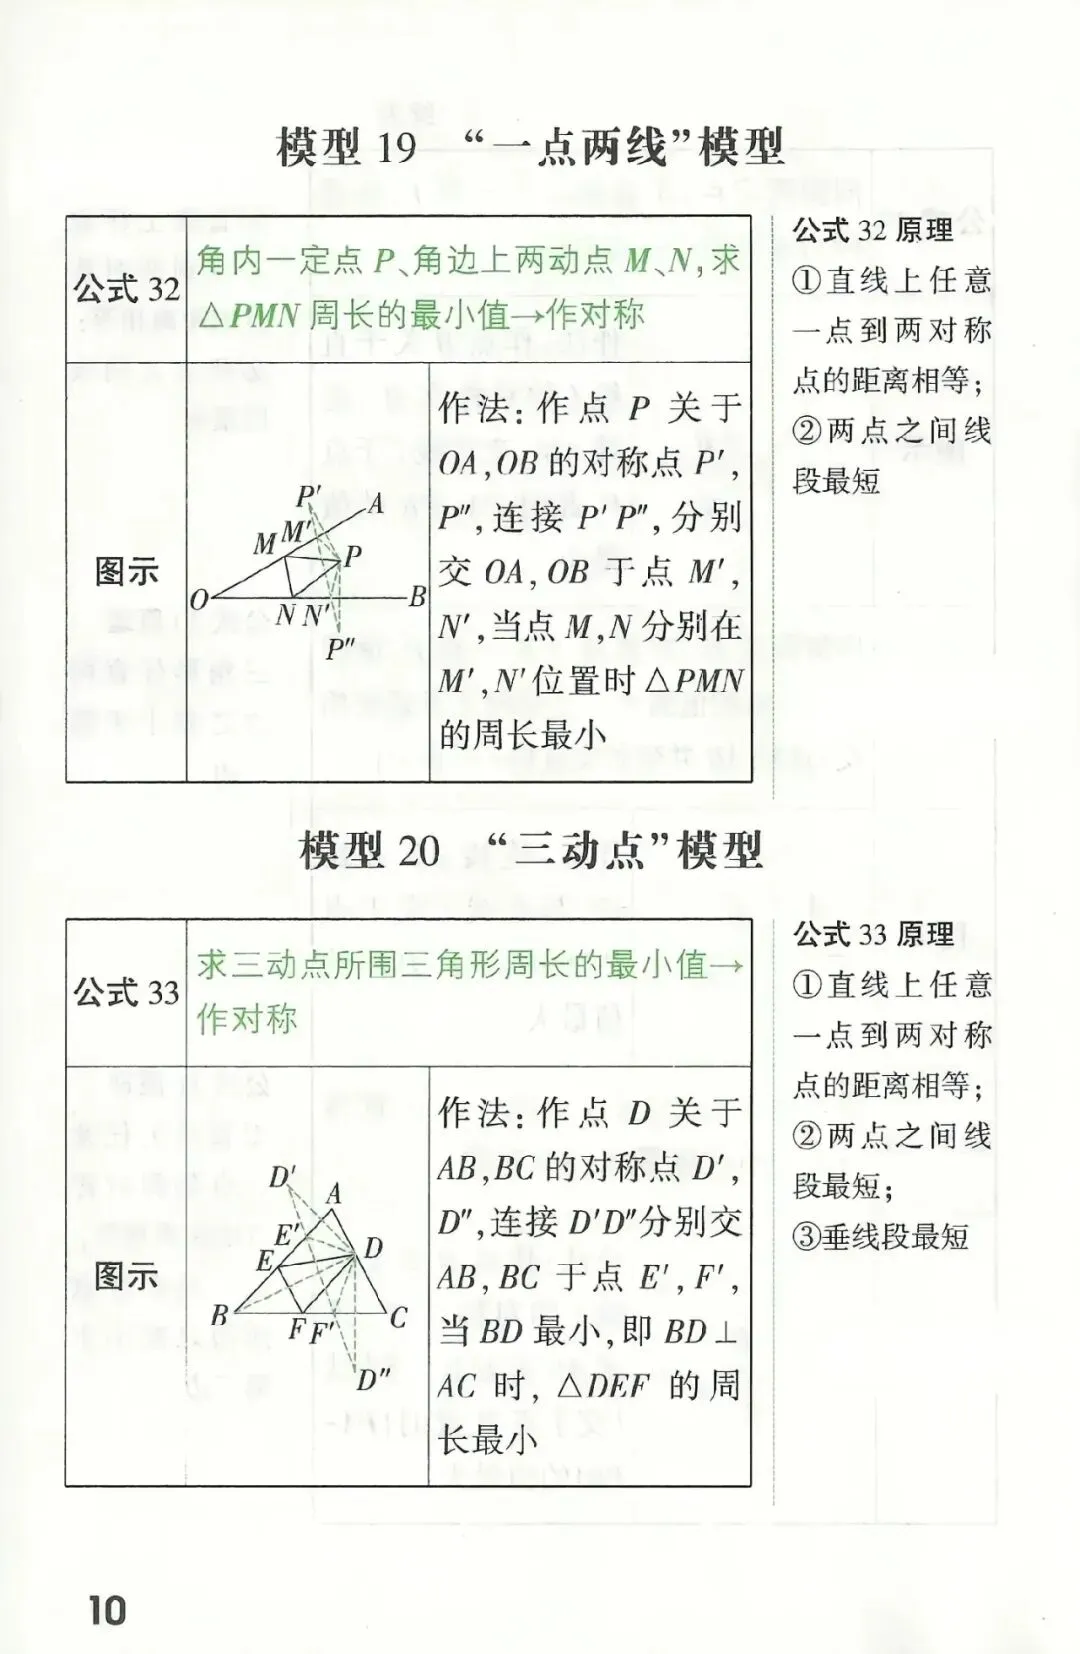 模型 19 “一点两线”模型
公式 32
角内一定点 P、角边上两动点 M、N,求
△PMN 周长的最小值→作对称
图示
P′
A
M
M′
P
O
N
N′
B
P″
作法:作点 P 关于
OA,OB 的对称点 P′,
P″,连接 P′P″,分别
交 OA,OB 于点 M′,
N′,当点 M,N 分别在
M′,N′位置时△PMN
的周长最小
公式 32 原理
①直线上任意
一点到两对称
点的距离相等;
②两点之间线
段最短
模型 20 “三动点”模型
公式 33
求三动点所围三角形周长的最小值→
作对称
图示
D′
A
E′
E
D
B
F
F′
C
D″
作法:作点 D 关于
AB,BC 的对称点 D′,
D″,连接 D′D″分别交
AB,BC 于点 E′,F′,
当 BD 最小,即 BD⊥
AC 时,△DEF 的周
长最小
公式 33 原理
①直线上任意
一点到两对称
点的距离相等;
②两点之间线
段最短;
③垂线段最短
10